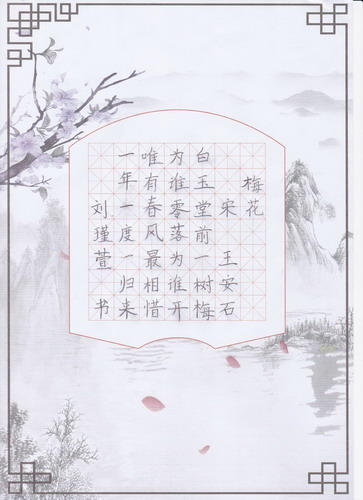 梅花
宋 王安石
白玉堂前一树梅
为谁零落为谁开
唯有春风最相惜
一年一度一归来
刘瑾萱 书